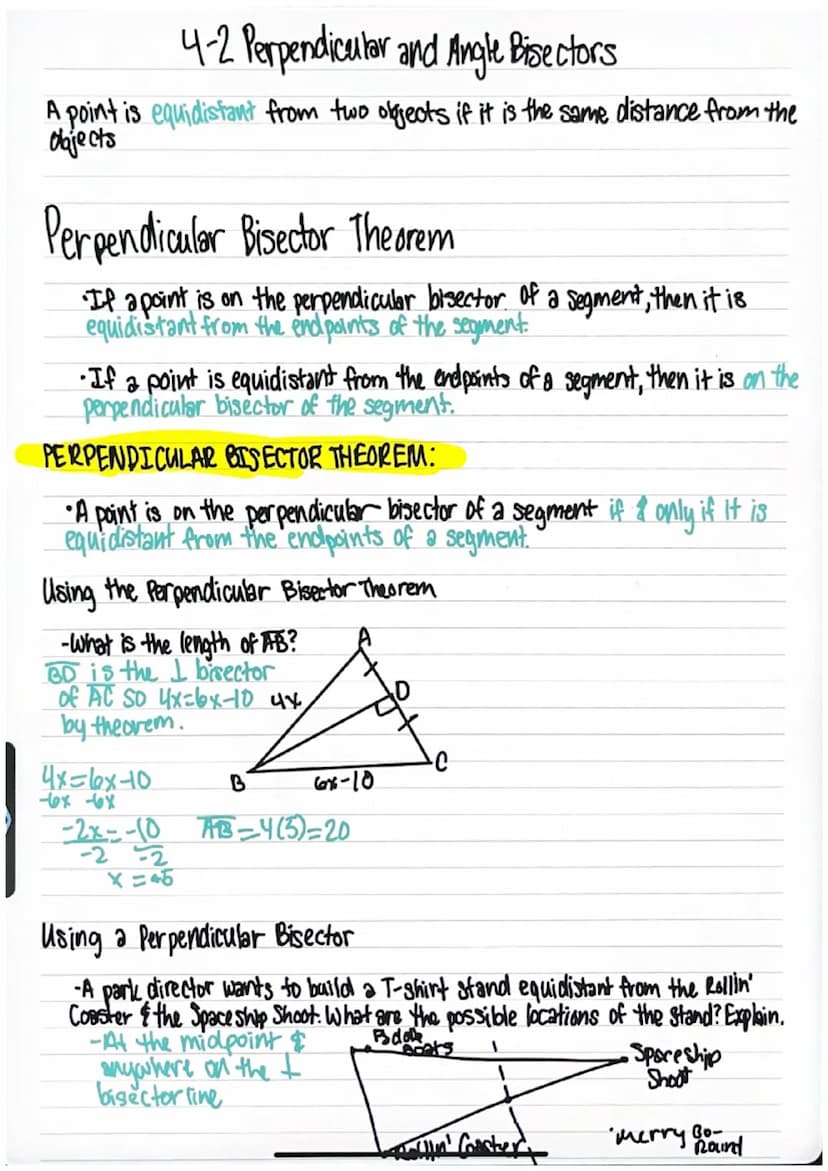 4-2 Perpendicular and Angle Bisectors
A point is equidistant from two objects if it is the same distance from the
objects
Perpendicular Bisector Theorem
•If a point is on the perpendicular bisector of a segment, then it is
equidistant from the endpoints of the segment.
•If a point is equidistant from the endpoints of a segment, then it is on the
perpendicular bisector of the segment.
PERPENDICULAR BISECTOR THEOREM:
•A point is on the perpendicular bisector of a segment if & only if it is
equidistant from the endpoints of a segment.
Using the Perpendicular Bisector Theorem
-What is the length of AB?
BD is the ⊥ bisector
of AC so 4x=6x-10
by theorem.
A
4x
D
B
6x-10
C
4x=6x-10
-6x -6x
-2x=-10
-2 -2
x = 5
AB=4(5)=20
Using a Perpendicular Bisector
-A park director wants to build a T-shirt stand equidistant from the Rollin'
Coaster & the Spaceship Shoot. What are the possible locations of the stand? Explain.
-At the midpoint &
anywhere on the ⊥
bisector line
Paddle
Boats
Spaceship
Shoot
Rollin' Coaster
•Merry Go-
Round